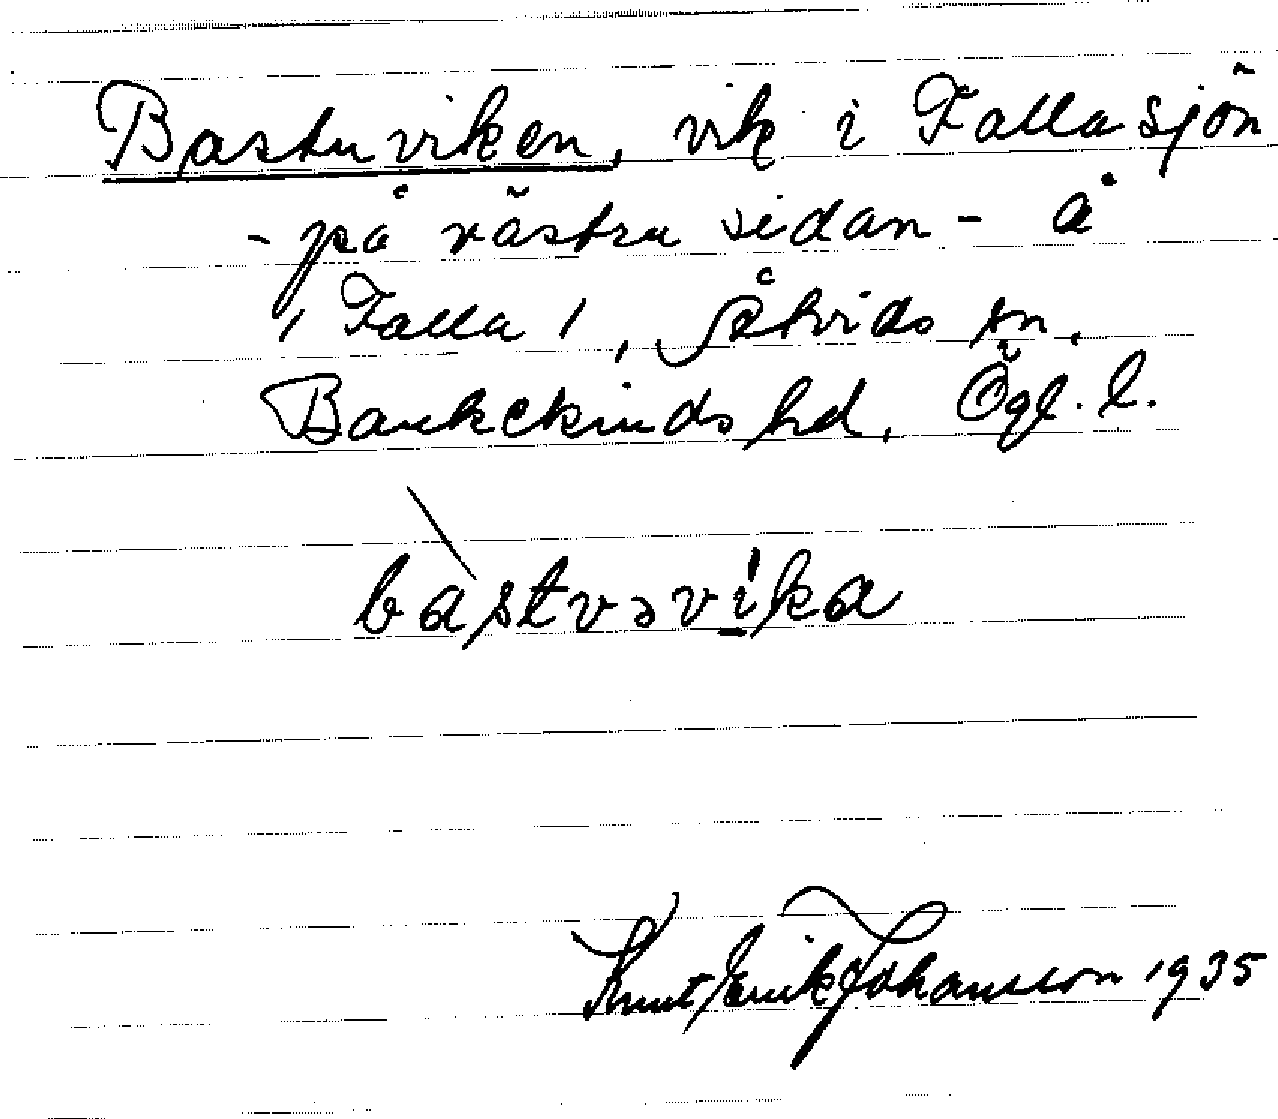 Bastuviken, vik i Fallasjön
- på västra sidan - å
/ Falla /, Åtvids sn,
Bankekinds hd, Ögl. l.
bastvəvika
Knut Erik Johansson 1935